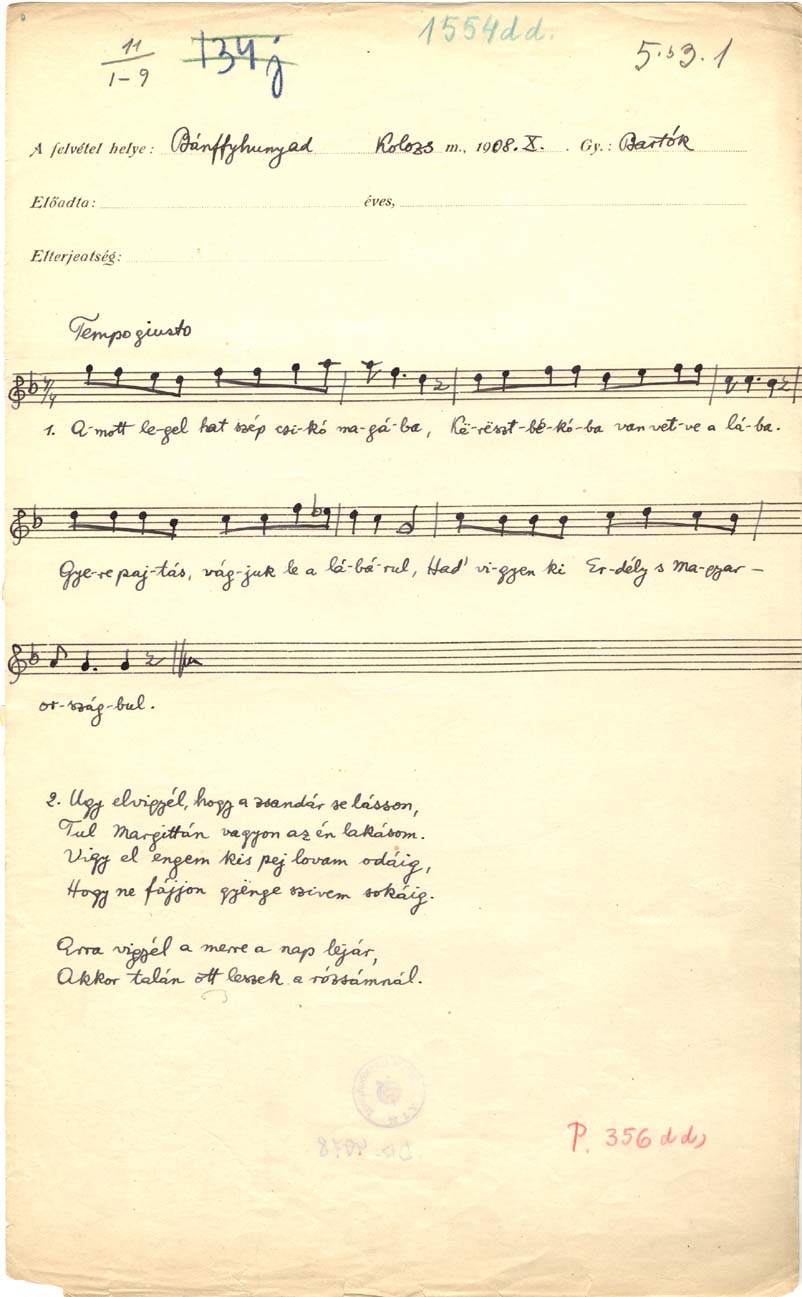 11/1-9 134j 1554dd. 5.s3.1
A felvétel helye: Bánffyhunyad Kolozs m., 1908. X. . Gy.: Bartók
Előadta: éves,
Elterjedtség:
Tempo giusto
7/4
1. A-mott le-gel hat szép csi-kó ma-gá-ba, Kë-rëszt-bé-kó-ba van vet-ve a lá-ba.
Gye-re paj-tás, vág-juk le a lá-bá-rul, Had' vi-gyen ki Er-dély s Ma-gyar-
or-szág-bul.
2. Ugy elvigyél, hogy a zsandár se lásson,
Tul Margittán vagyon az én lakásom.
Vigy el engem kis pej lovam odáig,
Hogy ne fájjon gyënge szivem sokáig.
Arra vigyél a merre a nap lejár,
Akkor talán ott leszek a rózsámnál.
P. 356 dd,